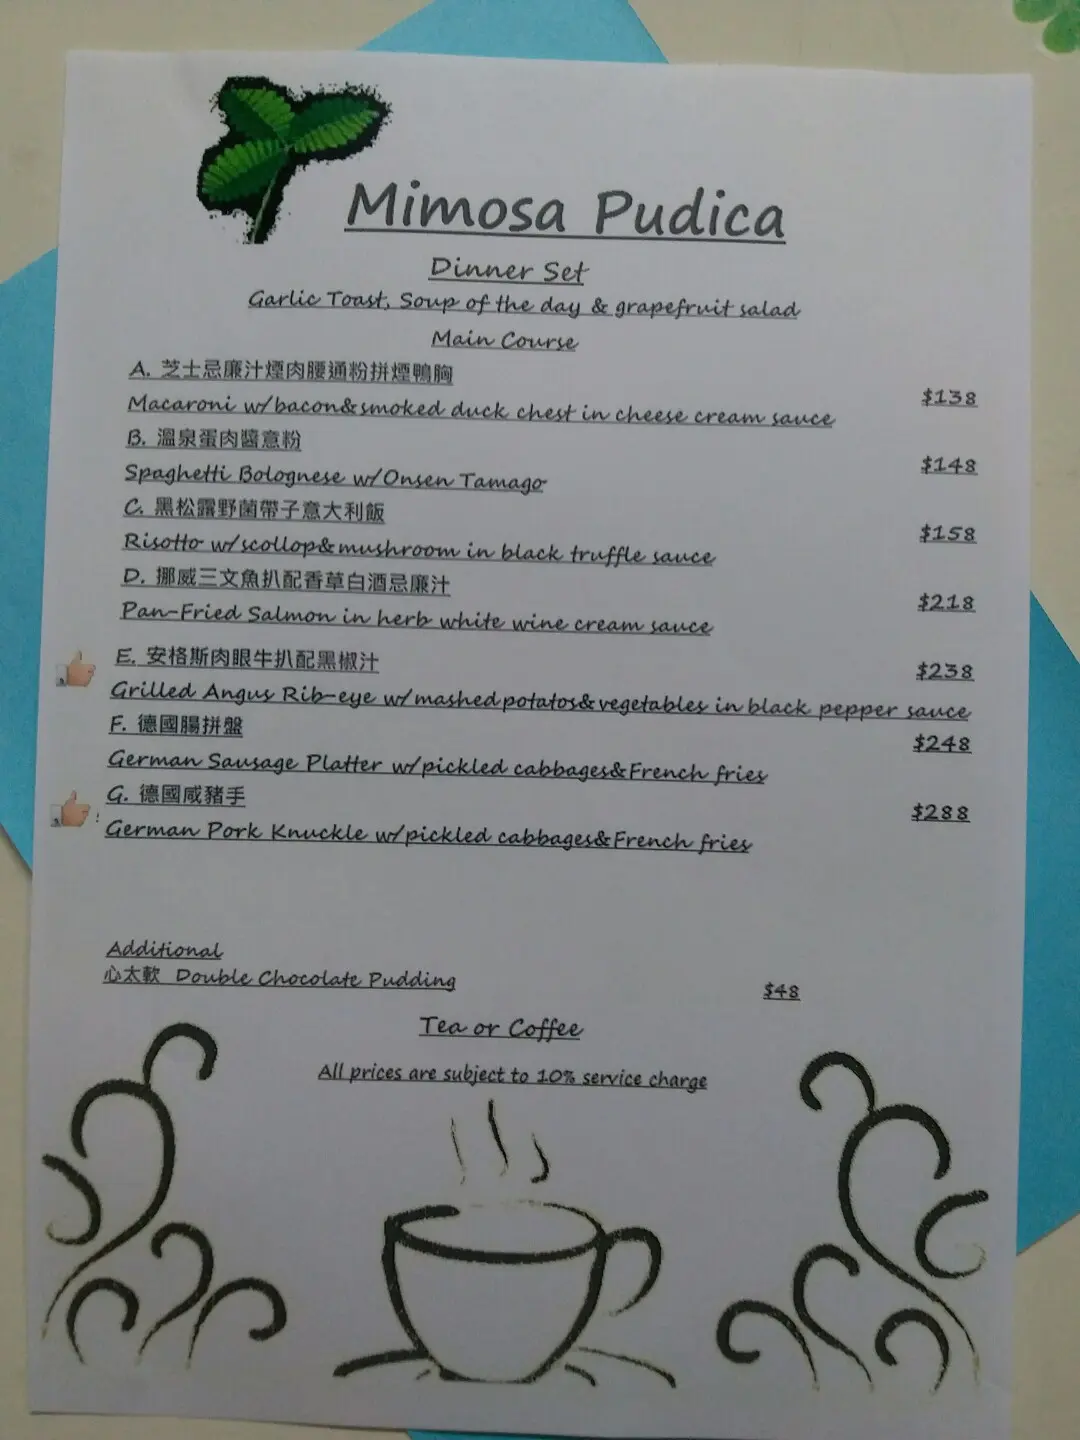 Mimosa Pudica
Dinner Set
Garlic Toast, Soup of the day & grapefruit salad
Main Course
A. 芝士忌廉汁煙肉腰通粉拼煙鴨胸
Macaroni w/bacon&smoked duck chest in cheese cream sauce $138
B. 溫泉蛋肉醬意粉
Spaghetti Bolognese w/Onsen Tamago $148
C. 黑松露野菌帶子意大利飯
Risotto w/scollop&mushroom in black truffle sauce $158
D. 挪威三文魚扒配香草白酒忌廉汁
Pan-Fried Salmon in herb white wine cream sauce $218
E. 安格斯肉眼牛扒配黑椒汁 $238
Grilled Angus Rib-eye w/mashed potatos&vegetables in black pepper sauce
F. 德國腸拼盤 $248
German Sausage Platter w/pickled cabbages&French fries
G. 德國咸豬手 $288
German Pork Knuckle w/pickled cabbages&French fries
Additional
心太軟 Double Chocolate Pudding $48
Tea or Coffee
All prices are subject to 10% service charge